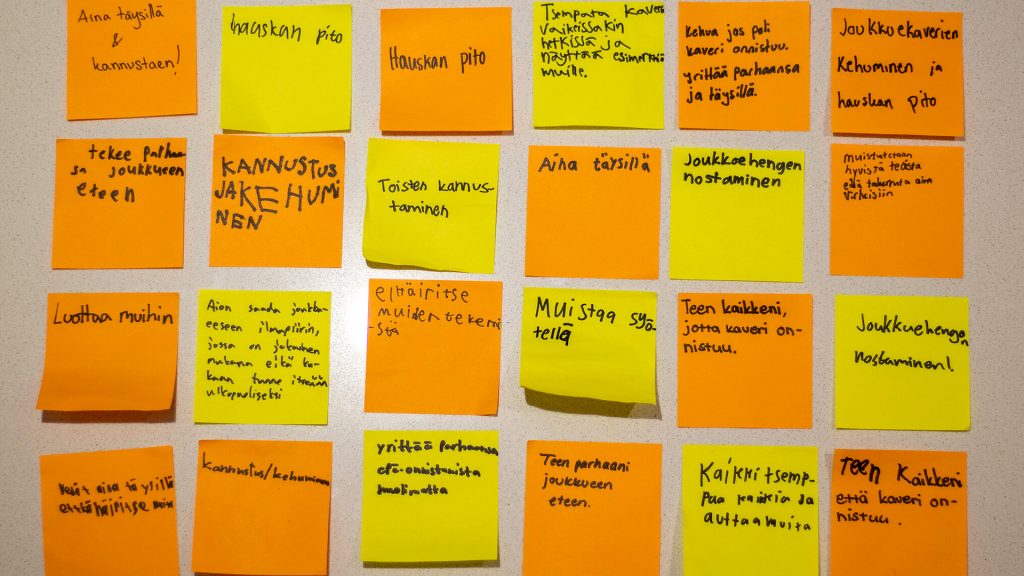 Aina täysillä
&
kannustaen!
hauskan pito
Hauskan pito
Tsempata kaveri
vaikeissakin
hetkissä ja
näyttää esimerkkiä
muille.
Kehua jos peli
kaveri onnistuu.
yrittää parhaansa
ja täysillä.
Joukkoekaverien
Kehuminen ja
hauskan pito
tekee parhaan
sa joukkueen
eteen
KANNUSTUS
JA KEHUMI
NEN
Toisten kannus-
taminen
Aina täysillä
Joukkoehengen
nostaminen
muistutetaan
hyvistä teoista
eikä takerruta aina
virheisiin
Luottaa muihin
Aion saada joukku-
eeseen ilmapiirin,
jossa on jokainen
mukana eikä ku-
kaan tunne itseään
ulkopuoliseksi
ei häiritse
muiden tekemi-
stä
Muistaa syö-
tellä
Teen kaikkeni,
jotta kaveri on-
nistuu.
Joukkuehengen
nostaminen!
aina täysillä
että häiritse
kannustus/kehuminen
yrittää parhaansa
onnistumista
Teen parhaani
joukkueen
eteen.
Kaikki tsemp-
paa kaikkia ja
auttaa muita
Teen Kaikkeni
että kaveri on-
nistuu.